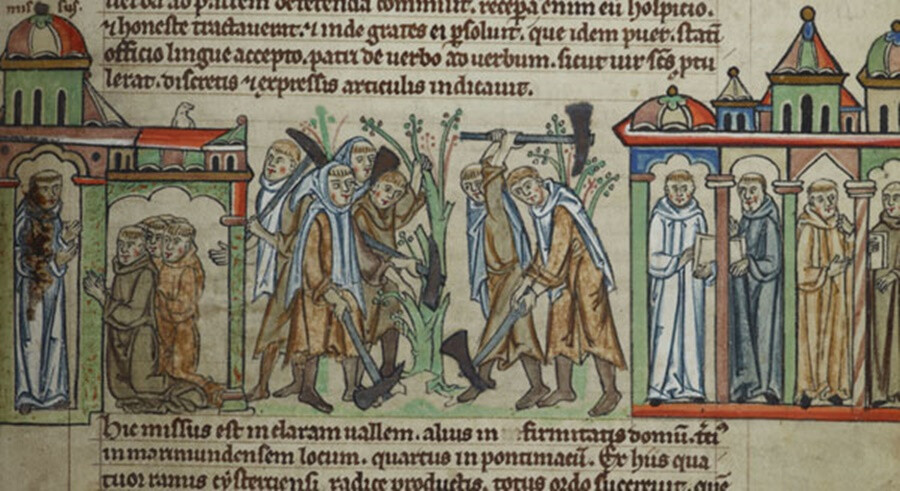 mis sus.
uerba ad patrem deferenda commisit. recepa enim eu hospicio.
⁊ honeste tractauerat. ⁊ inde grates ei psoluit. que idem puer. statī
officio lingue accepto. patri de uerbo ad uerbum. sicut uir scs ptu
lerat. discretis ⁊ expressis articulis indicauit.
hic missus est in claram uallem. alius in firmitatis domū. tci⁹
in marimundensem locum. quartus in pontiniacū. Ex hiis qua
tuor ramis cysterciensi radice productis. totus ordo succreuit. que